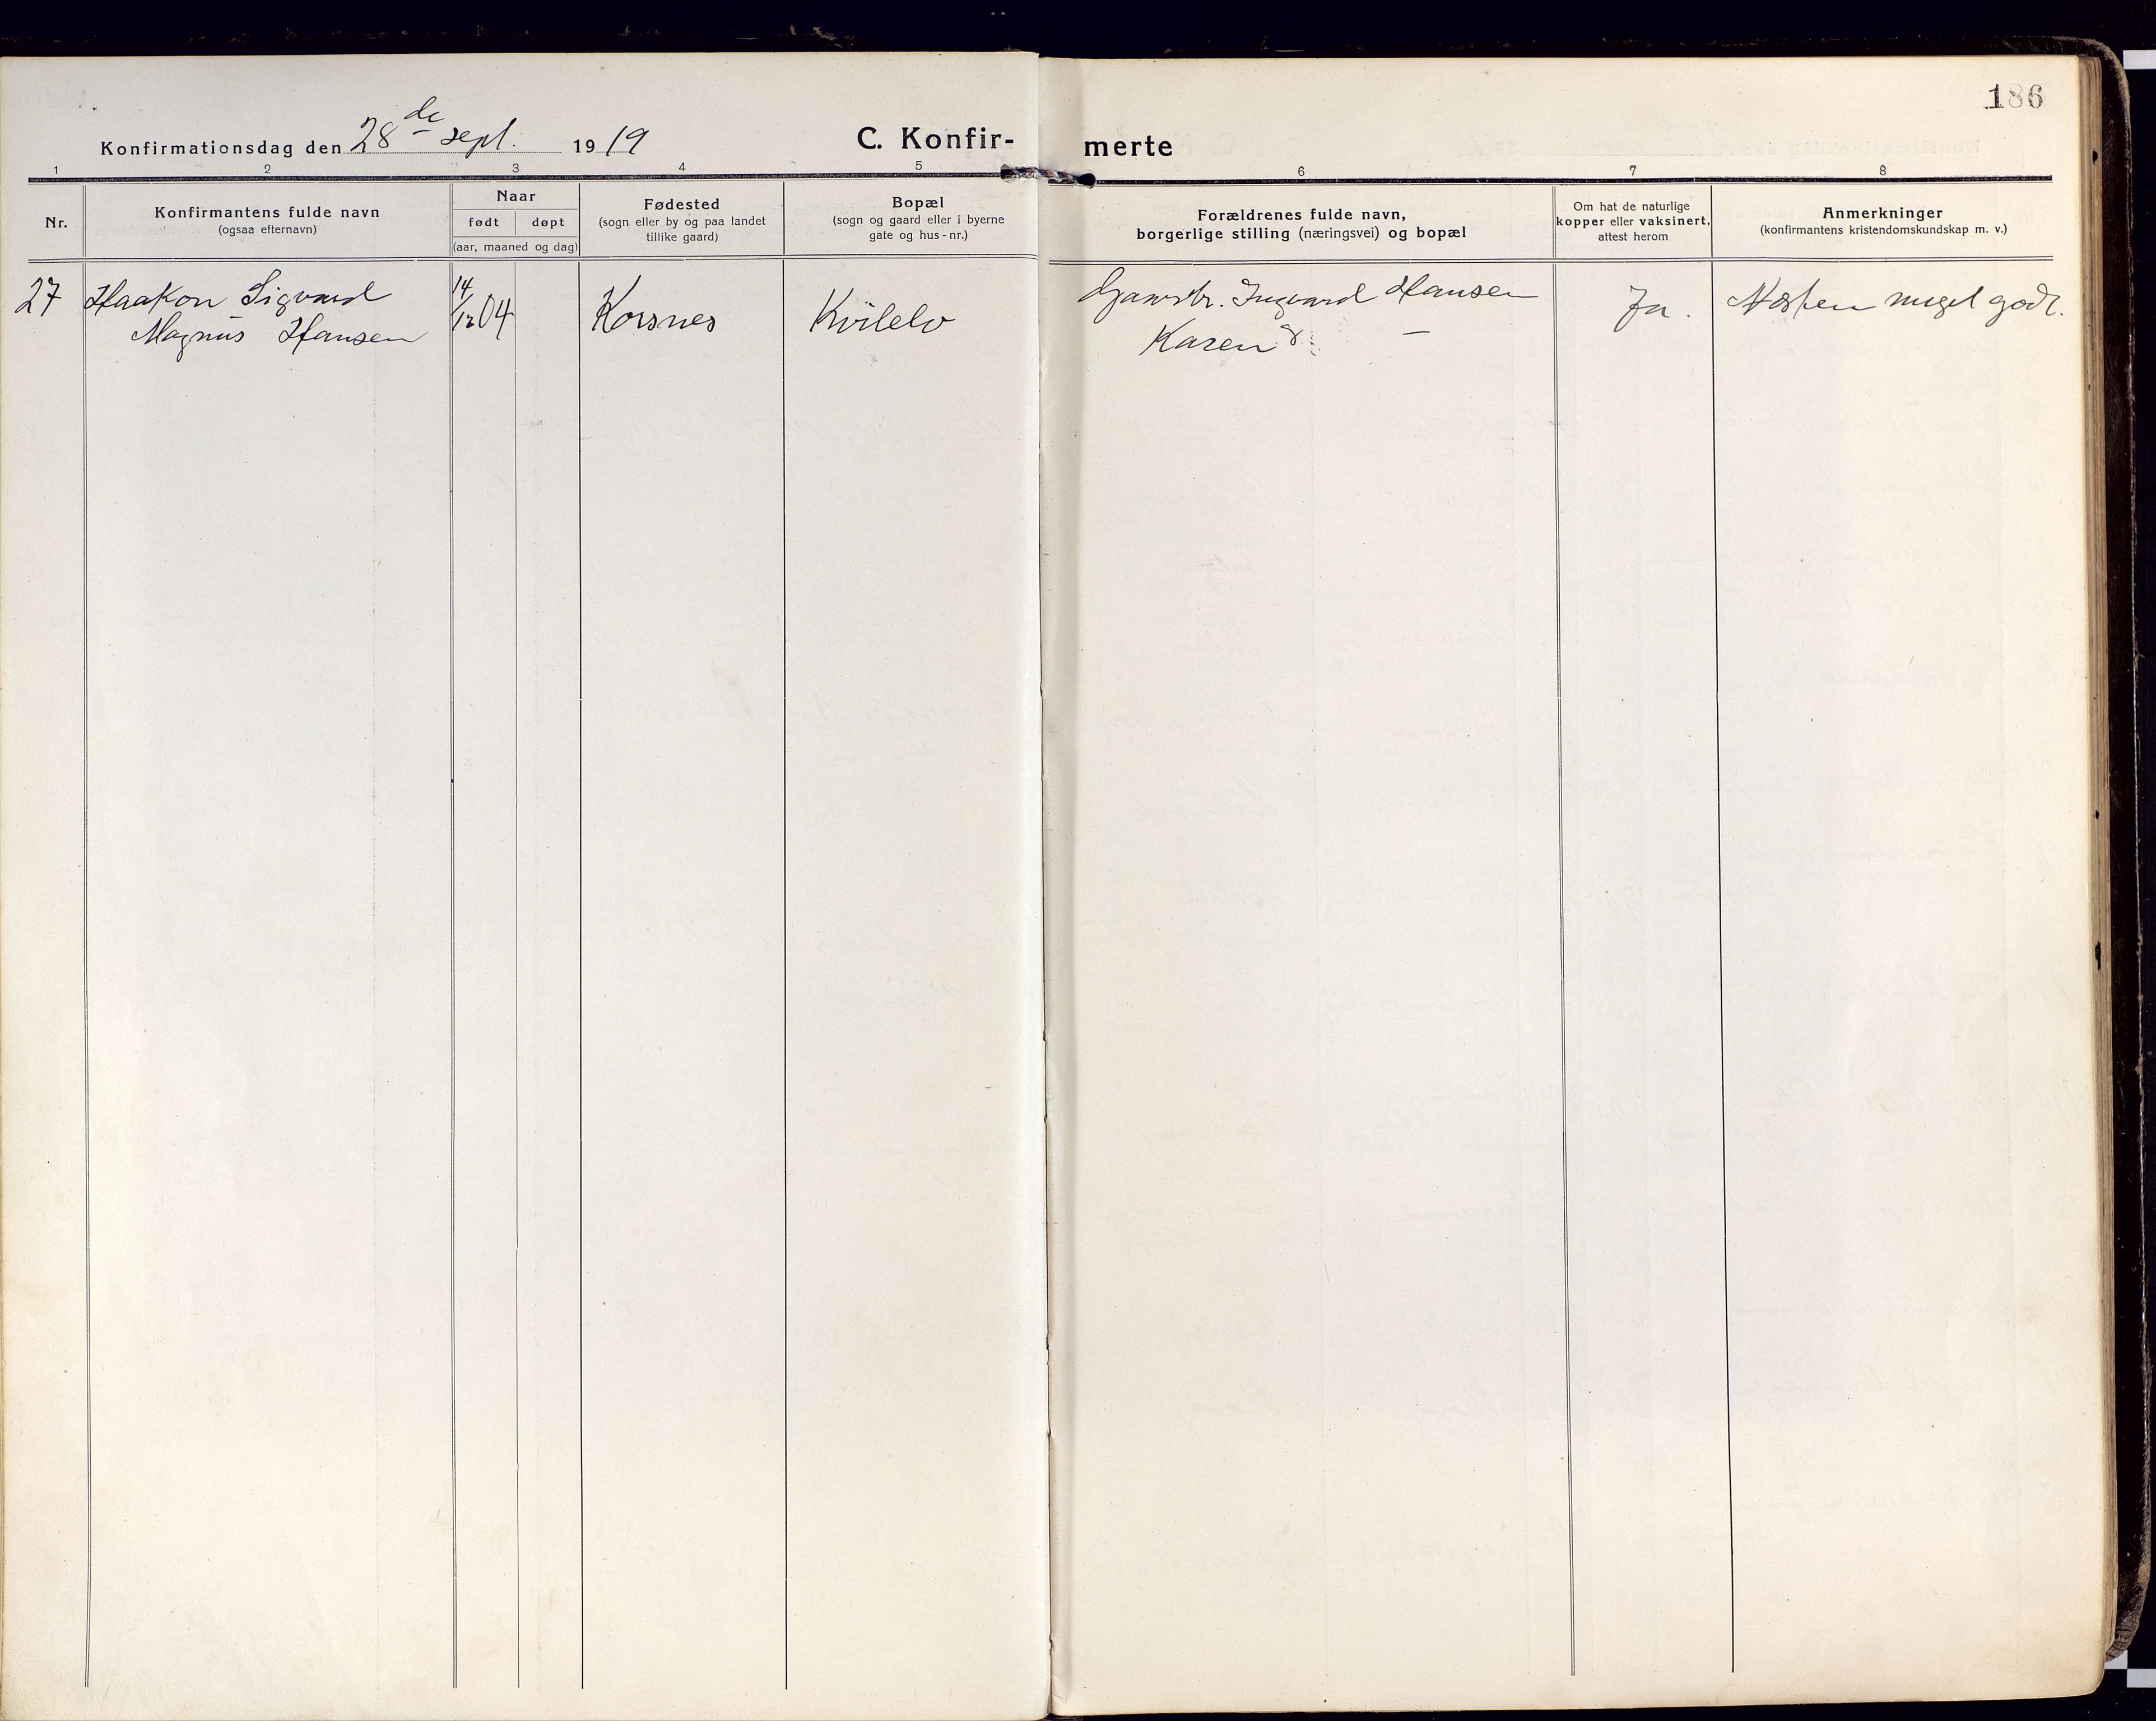 186
Konfirmationsdag den 28de sept. 1919
C. Konfir-
merte
1 2 3 4 5 6 7 8
Nr.
Konfirmantens fulde navn
(ogsaa efternavn)
Naar
født døpt
(aar, maaned og dag)
Fødested
(sogn eller by og paa landet
tillike gaard)
Bopæl
(sogn og gaard eller i byerne
gate og hus-nr.)
Forældrenes fulde navn,
borgerlige stilling (næringsvei) og bopæl
Om hat de naturlige
kopper eller vaksinert,
attest herom
Anmerkninger
(konfirmantens kristendomskundskap m. v.)
27 Haakon Sigvard
Magnus Hansen
14/12 04
Korsnes
Kvilelv
Gaardbr. Ingvard Hansen
Karen —
Ja.
Næsten meget godt.